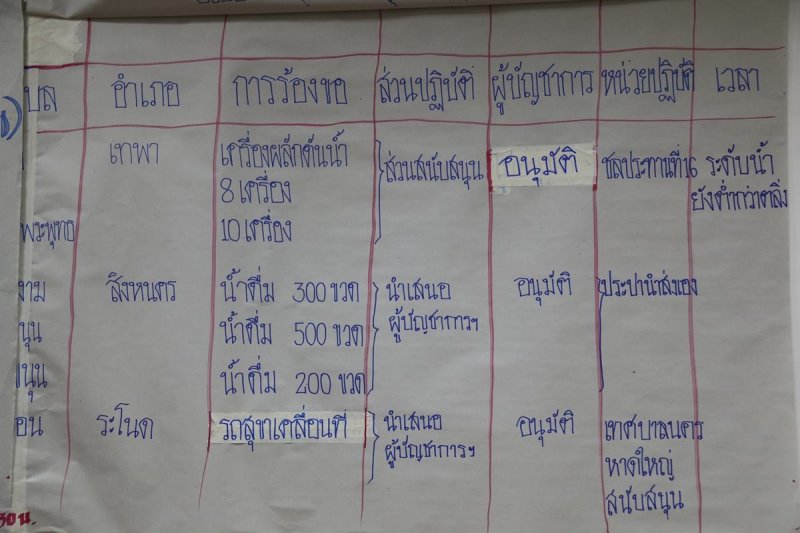 บล อำเภอ การร้องขอ ส่วนปฏิบัติ ผู้บัญชาการ หน่วยปฏิบัติ เวลา
เทพา เครื่องผลักดันน้ำ ส่วนสนับสนุน อนุมัติ ชลประทานที่16 ระดับน้ำ
8 เครื่อง ยังต่ำกว่าตลิ่ง
พระพุทธ 10 เครื่อง
งาม สิงหนคร น้ำดื่ม 300 ขวด นำเสนอ อนุมัติ ประปานำส่งเอง
นุน น้ำดื่ม 500 ขวด ผู้บัญชาการฯ
นุน น้ำดื่ม 200 ขวด
อน ระโนด รถสุขาเคลื่อนที่ นำเสนอ อนุมัติ เทศบาลนคร
ผู้บัญชาการฯ หาดใหญ่
สนับสนุน
30 น.